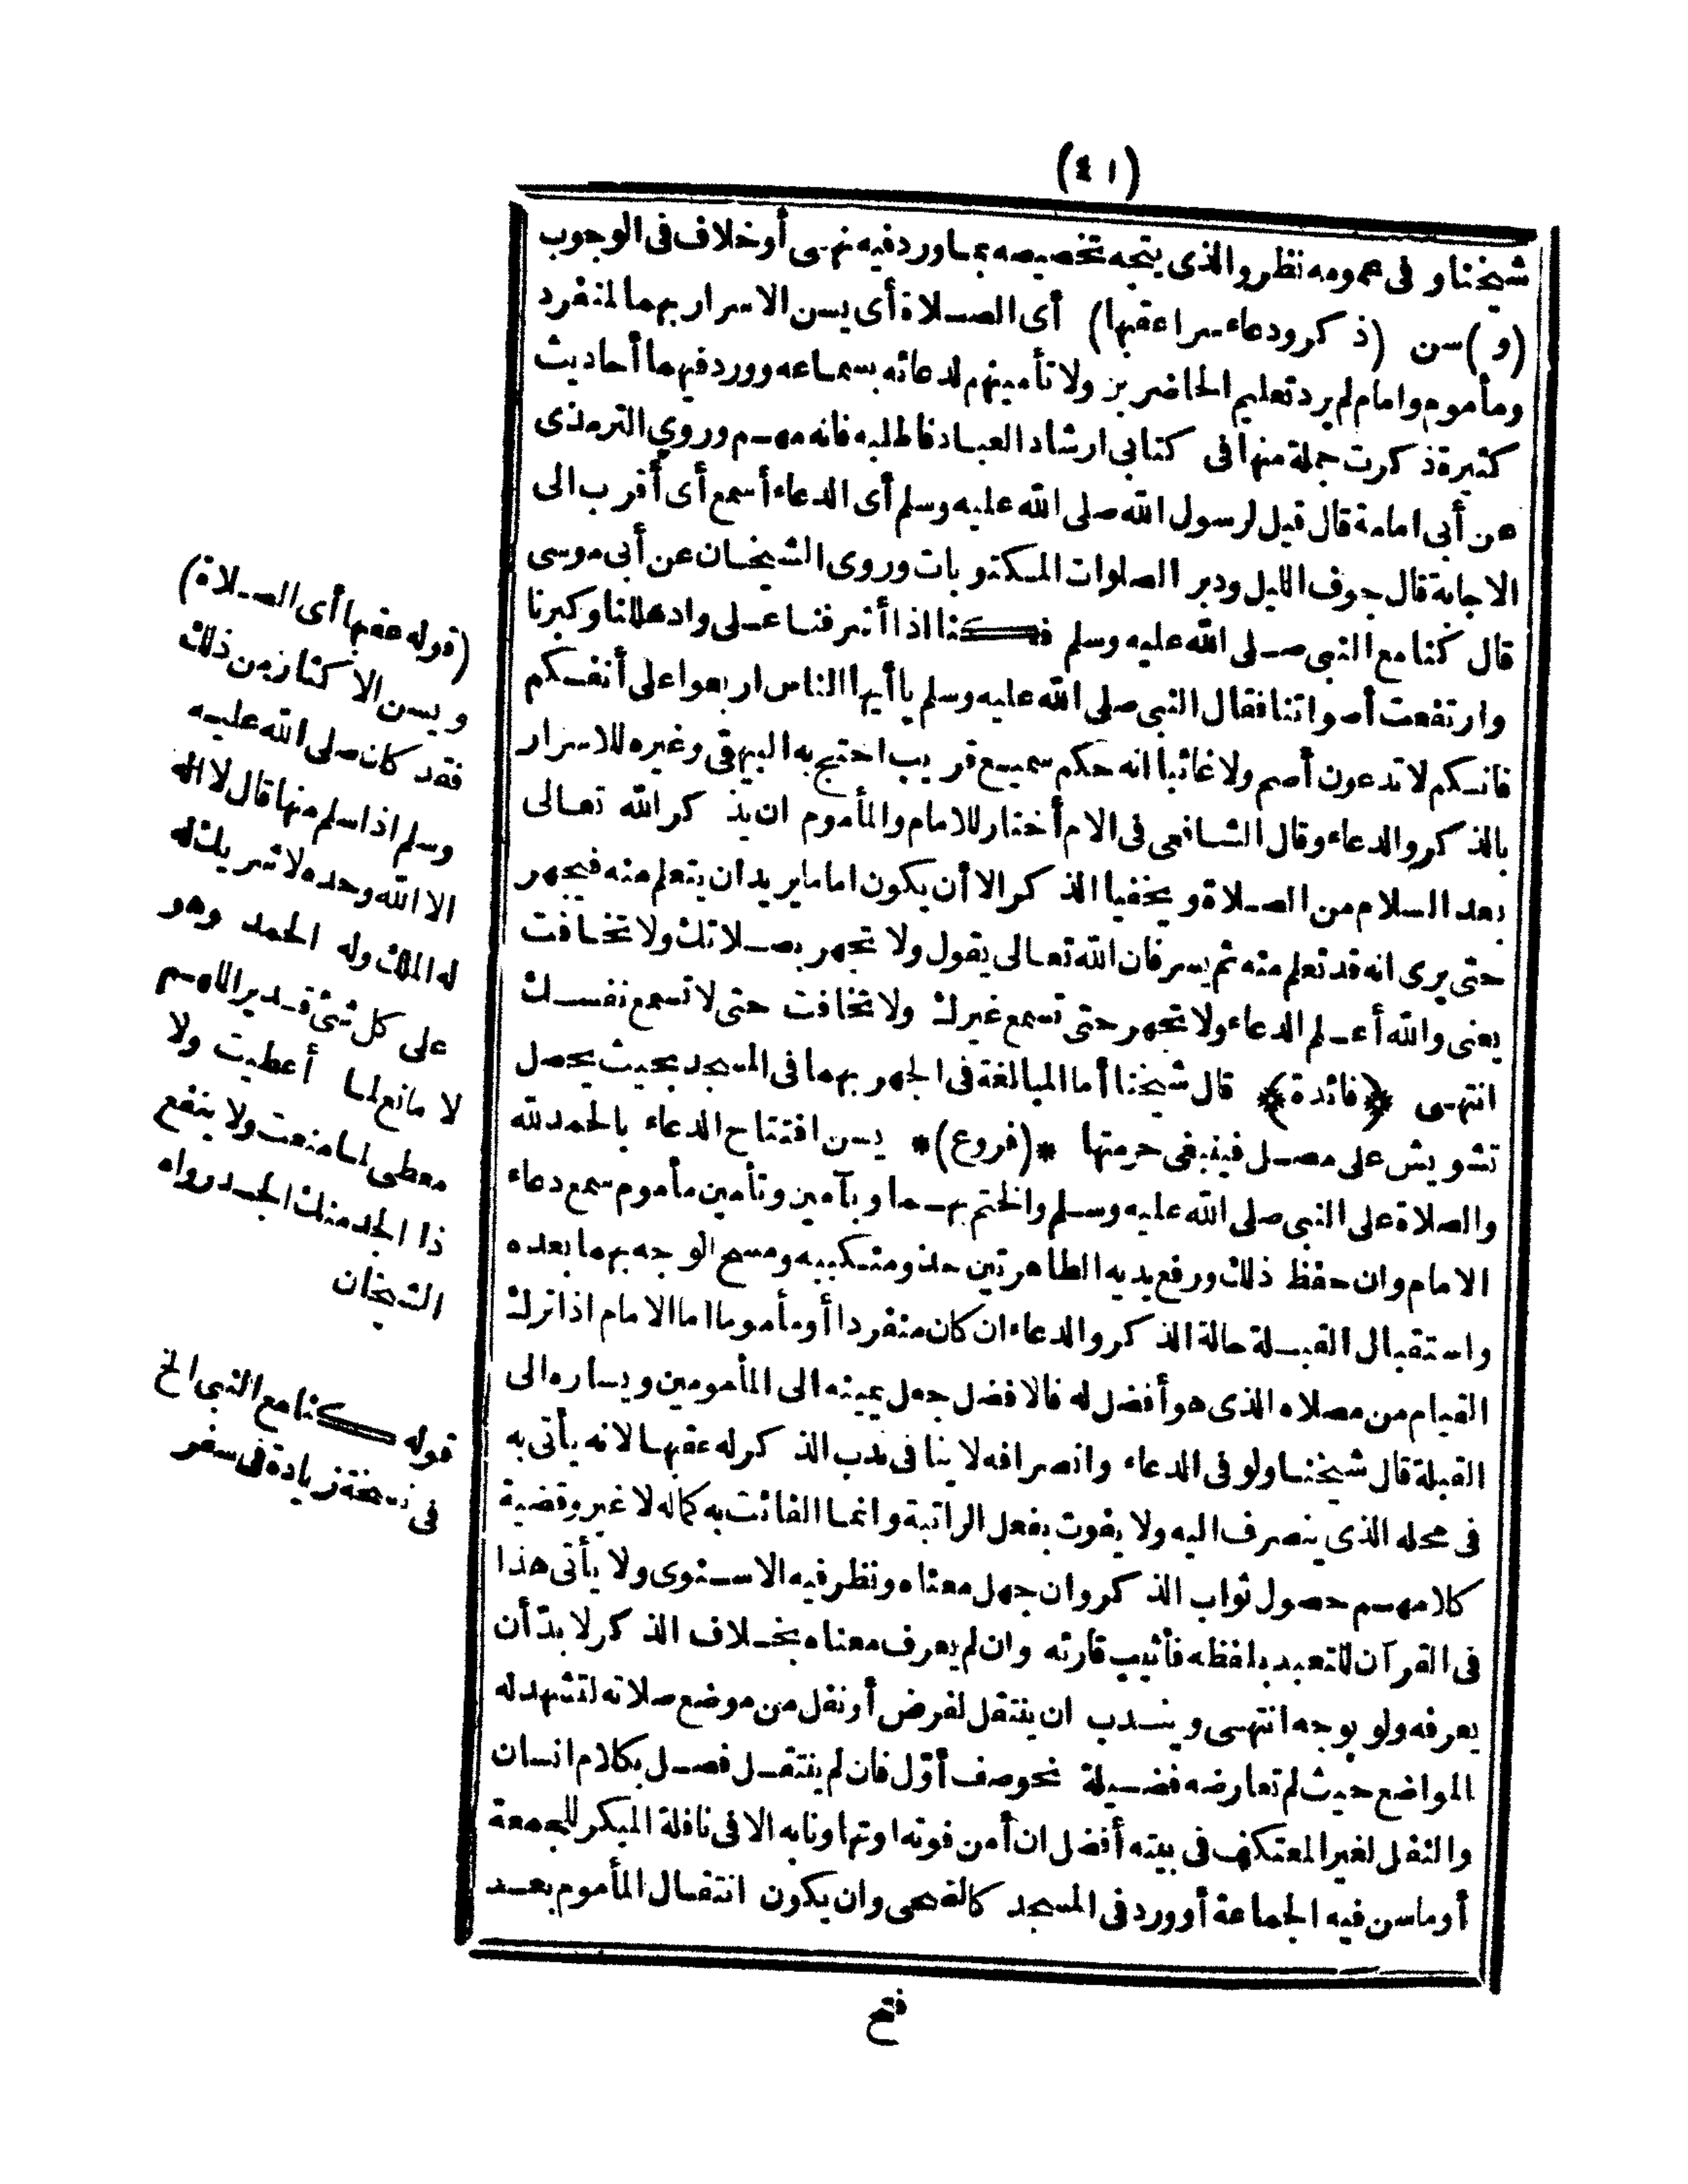 (٤١)
شيخنا وفى عمومه نظر والذى يتجه تخصيصه بما ورد فيه نهى أو خلاف فى الوجوب
(و) سن (ذكر ودعاء سرا عقبها) أى الصلاة أى يسن الاسرار بهما لمنفرد
ومأموم وامام لم يرد تعليم الحاضرين ولا تأمينهم لدعائه بسماعه وورد فيهما أحاديث
كثيرة ذكرت جملة منها فى كتابى ارشاد العباد فاطلبه فانه مهم وروى الترمذى
عن أبى امامة قال قيل لرسول الله صلى الله عليه وسلم أى الدعاء أسمع أى أقرب الى
الاجابة قال جوف الليل ودبر الصلوات المكتوبات وروى الشيخان عن أبى موسى
قال كنا مع النبى صلى الله عليه وسلم فكنا اذا أشرفنا على واد هللنا وكبرنا
وارتفعت أصواتنا فقال النبى صلى الله عليه وسلم يا أيها الناس اربعوا على أنفسكم
فانكم لا تدعون أصم ولا غائبا انه حكم سميع قريب احتج به البيهقى وغيره للاسرار
بالذكر والدعاء وقال الشافعى فى الام أختار للامام والمأموم ان يذكر الله تعالى
بعد السلام من الصلاة ويخفيا الذكر الا أن يكون اماما يريد ان يتعلم منه فيجهر
حتى يرى انه قد تعلم منه ثم يسر فان الله تعالى يقول ولا تجهر بصلاتك ولا تخافت
يعنى والله أعلم الدعاء ولا تجهر حتى تسمع غيرك ولا تخافت حتى لا تسمع نفسك
انتهى ﴿فائدة﴾ قال شيخنا أما المبالغة فى الجهر بهما فى المسجد بحيث يحصل
تشويش على مصل فينبغى حرمتها *(فروع)* يسن افتتاح الدعاء بالحمد لله
والصلاة على النبى صلى الله عليه وسلم والختم بهما وبآمين وتأمين مأموم سمع دعاء
الامام وان حفظ ذلك ورفع يديه الطاهرتين حذو منكبيه ومسح الوجه بهما بعده
واستقبال القبلة حالة الذكر والدعاء ان كان منفردا أو مأموما اما الامام اذا ترك
القيام من مصلاه الذى هو أفضل له فالافضل جعل يمينه الى المأمومين ويساره الى
القبلة قال شيخنا ولو فى الدعاء وانصرافه لا ينافى ندب الذكر له عقبها لانه يأتى به
فى محله الذى ينصرف اليه ولا يفوت بفعل الراتبة وانما الفائت به كماله لا غير وقضية
كلامهم حصول ثواب الذكر وان جهل معناه ونظر فيه الاسنوى ولا يأتى هذا
فى القرآن للتعبد بلفظه فأثيب قارئه وان لم يعرف معناه بخلاف الذكر لا بدّ أن
يعرفه ولو بوجه انتهى ويندب ان ينتقل لفرض أو نفل من موضع صلاته لتشهد له
المواضع حيث لم تعارضه فضيلة نحو صف أوّل فان لم ينتقل فصل بكلام انسان
والنفل لغير المعتكف فى بيته أفضل ان أمن فوته او تهاونا به الا فى نافلة المبكر للجمعة
أو ما سن فيه الجماعة أو ورد فى المسجد كالضحى وان يكون انتقال المأموم بعد
فتح
(قوله عقبها أى الصلاة)
ويسن الاكثار من ذلك
فقد كان صلى الله عليه
وسلم اذا سلم منها قال لا اله
الا الله وحده لا شريك له
له الملك وله الحمد وهو
على كل شئ قدير اللهم
لا مانع لما أعطيت ولا
معطى لما منعت ولا ينفع
ذا الجد منك الجد رواه
الشيخان
قوله كنا مع النبى الخ
فى نسخة زيادة فى سفر